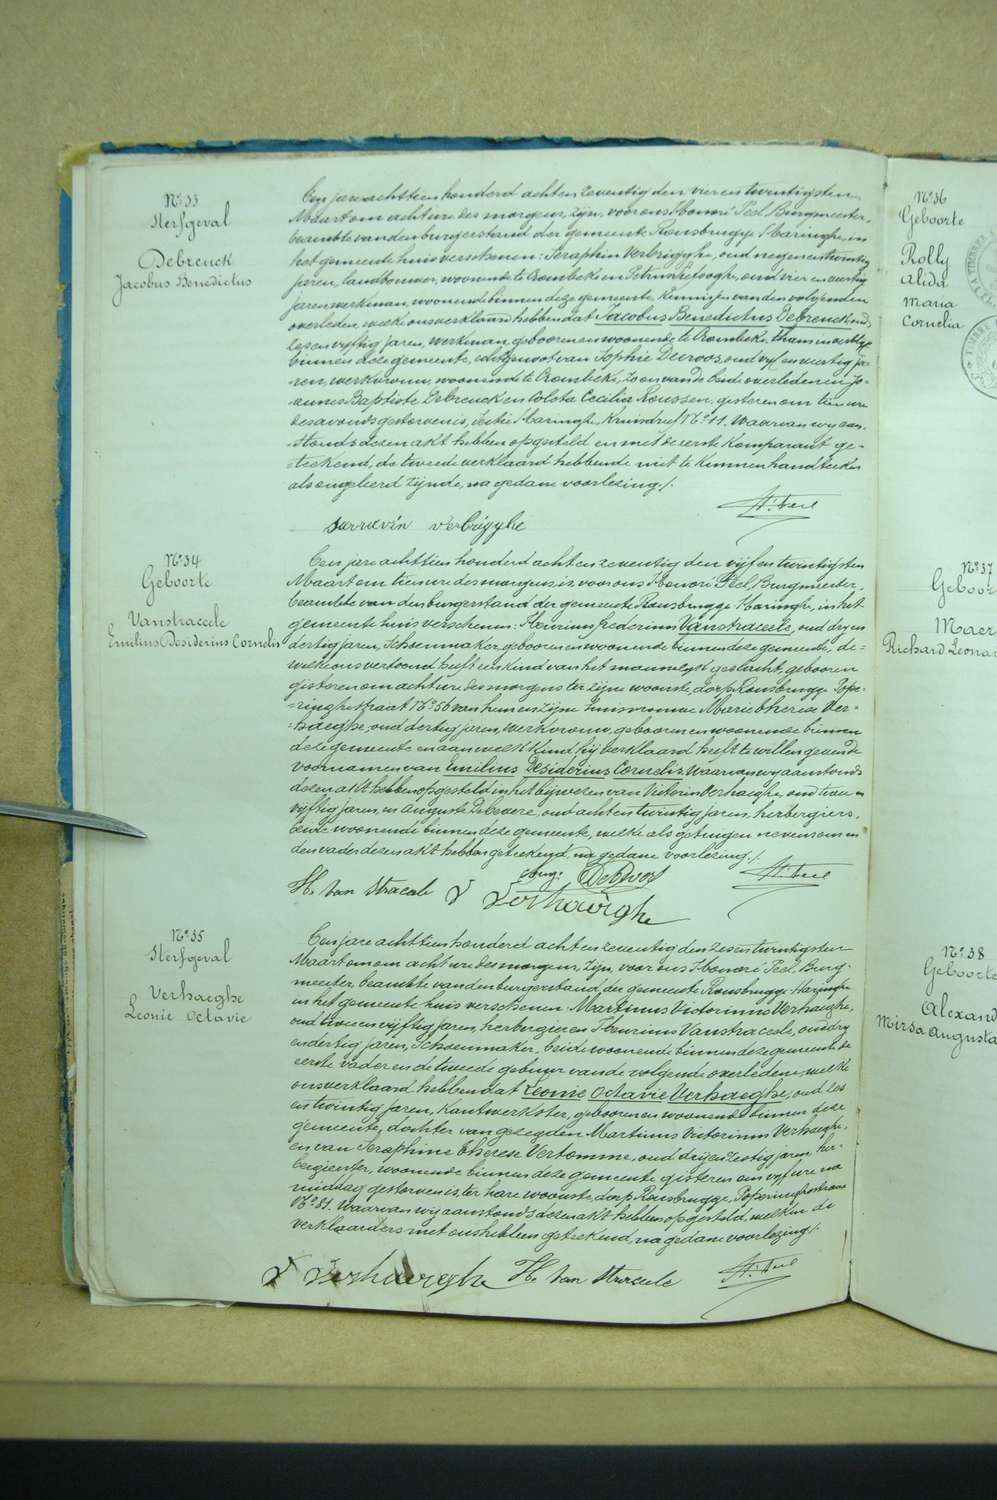 N° 33
Sterfgeval
Debrenck
Jacobus Benedictus
Een jare achttien honderd acht en zeventig den vier en twintigsten
Maart om acht ure des morgens, zijn, voor ons Honoré Peel, Burgmeester,
beambte van den burgerstand der gemeente Rousbrugge Haringhe, in
het gemeente huis verschenen: Seraphin Verbrigghe, oud negen en twintig
jaren, landbouwer, woonende te Crombeke en Petrus oud vier en veertig
jaren werkman, woonende binnen deze gemeente, kennissen van den volgenden
overleden, welke ons verklaard hebben dat Jacobus Benedictus Debrenck oud
zes en vyftig jaren, werkman, geboren en woonende te Crombeke, thans in verblijf
binnen deze gemeente, echtgenoot van Sophie Deroos, oud vyf en veertig ja-
ren, werkvrouw, woonende te Crombeke, zoon van de beide overledenen Jo-
annes Baptiste Debrenck en Coleta Cecilia Roussen, gisteren om tien ure
des avonds gestorven is, Sectie Haringhe, Kruisdreef N° 11. Waarvan wy aan-
stonds dezen akt hebben opgesteld en met de eerste komparant ge-
teekend, de tweede verklaard hebbende niet te kunnen handteeken
als ongeleerd zijnde, na gedane voorlezing /.
H. Peel
Verbrigghe
N° 34
Geboorte
Vanstraceele
Emilius Desiderius Cornelis
Een jare achttien honderd acht en zeventig den vijf en twintigsten
Maart om tien ure des morgens, is voor ons Honoré Peel Burgmeester,
beambte van den burgerstand der gemeente Rousbrugge Haringhe, in het
gemeente huis verschenen: Henricus Frederinus Vanstraceele, oud dry en
dertig jaren, Schoenmaker, geboren en woonende binnen deze gemeente, de-
welke ons vertoond heeft een kind van het mannelyk geslacht, geboren
gisteren om acht ure des morgens ter zijne woonste, dorp Rousbrugge Pope-
ringhestraat N° 56 van hem en zijne huisvrouw Marie Therese Ver-
haeghe, oud dertig jaren, werkvrouw, geboren en woonende binnen
deze gemeente en aan welk kind hij verklaard heeft te willen geven de
voornamen van Emilius Desiderius Cornelis. Waarvan wy aanstonds
dezen akt hebben opgesteld in het bijwezen van Victorin Verhaeghe, oud twee en
vyftig jaren, en Auguste Debevere, oud acht en twintig jaren, herbergiers,
beide woonende binnen deze gemeente, welke als getuigen nevens ons en
den vader dezen akt hebben geteekend, na gedane voorlezing /.
H. Peel
H. Van Stracele V Verhaeghe
N° 35
Sterfgeval
Verhaeghe
Leonie Octavie
Een jare achttien honderd acht en zeventig den zes en twintigsten
Maart om acht ure des morgens, zijn, voor ons Honoré Peel, Burg-
meester, beambte van den burgerstand der gemeente Rousbrugge Haringhe
in het gemeente huis verschenen Martinus Victorinus Verhaeghe,
oud twee en vyftig jaren, herbergier en Henricus Vanstraceele, oud dry
en dertig jaren, Schoenmaker, beide woonende binnen deze gemeente, de
eerste vader en de tweede gebuur van de volgende overledene, welke
ons verklaard hebben dat Leonie Octavie Verhaeghe, oud zes
en twintig jaren, kantwerkster, geboren en woonende binnen deze
gemeente, dochter van gezegden Martinus Victorinus Verhaeghe,
en van Seraphine Therese Vertomme, oud drij en zestig jaren, her-
bergierster, woonende binnen deze gemeente gisteren om vyf ure na
middag gestorven is, ter hare woonste, dorp Rousbrugge, Poperinghestraat
N° 81. Waarvan wij aanstonds dezen akt hebben opgesteld, welken de
verklaarders met ons hebben geteekend, na gedane voorlezing /.
V Verhaeghe H. Van Stracele H. Peel
N° 36
Geboorte
Rolly
Alida
Maria
Cornelia
N° 37
Geboor
Maer
Richard Leonar
N° 38
Geboorte
Alexand
Mirsa Augusta